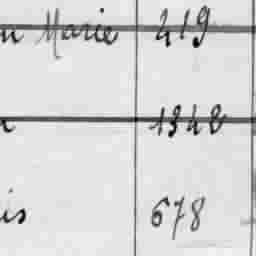 n Marie 419
n 1348
is 678